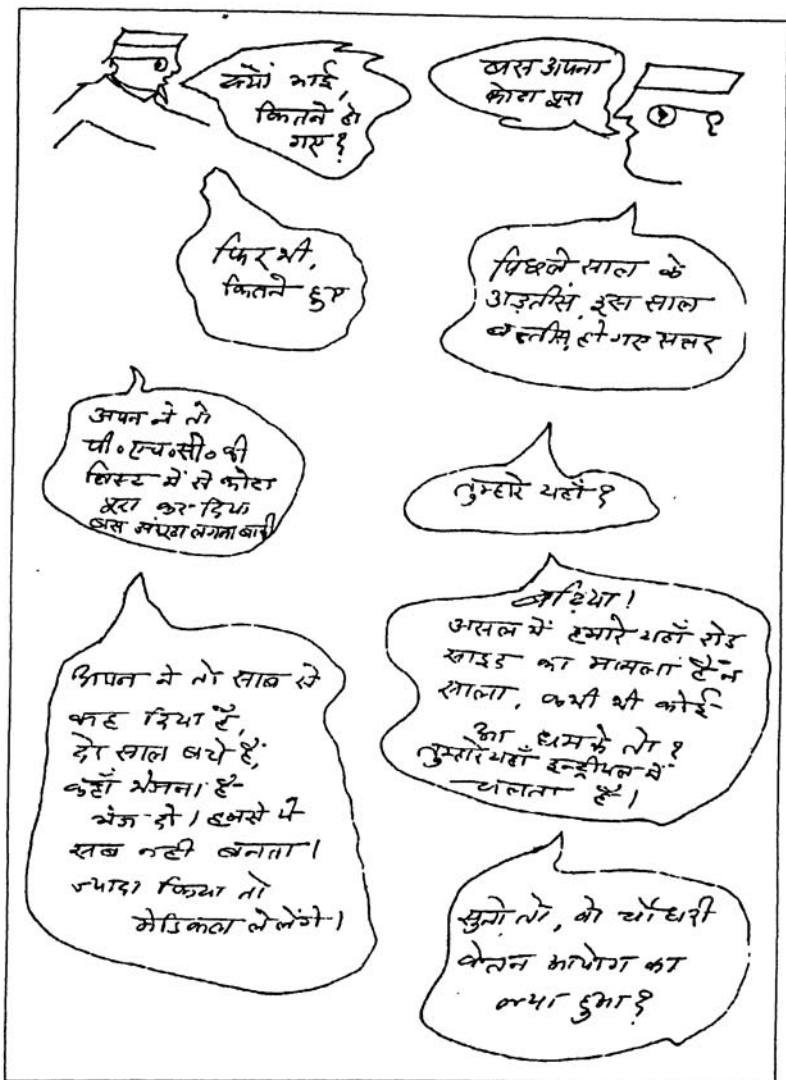 क्यों भाई,
कितने हो
गए?
बस अपना
कोटा पूरा
फिर भी,
कितने हुए
पिछले साल के
अड़तीस, इस साल
बत्तीस, हो गए सत्तर
अपन ने तो
पी॰एच॰सी॰ की
लिस्ट में से कोटा
पूरा कर दिया
बस अंगूठा लगना बाकी
तुम्हारे यहाँ?
बढ़िया!
असल में हमारे यहाँ रोड
साइड का मामला है न
साला, कभी भी कोई
आ धमके तो?
तुम्हारे यहाँ इन्ट्रीयल में
चलता है।
अपन ने तो साब से
कह दिया है,
दो साल बचे हैं,
कहाँ भेजना है-
भेज दो। हमसे ये
सब नहीं बनता।
ज्यादा किया तो
मेडिकल ले लेंगे।
सुनो तो, वो चौधरी
वेतन आयोग का
क्या हुआ?